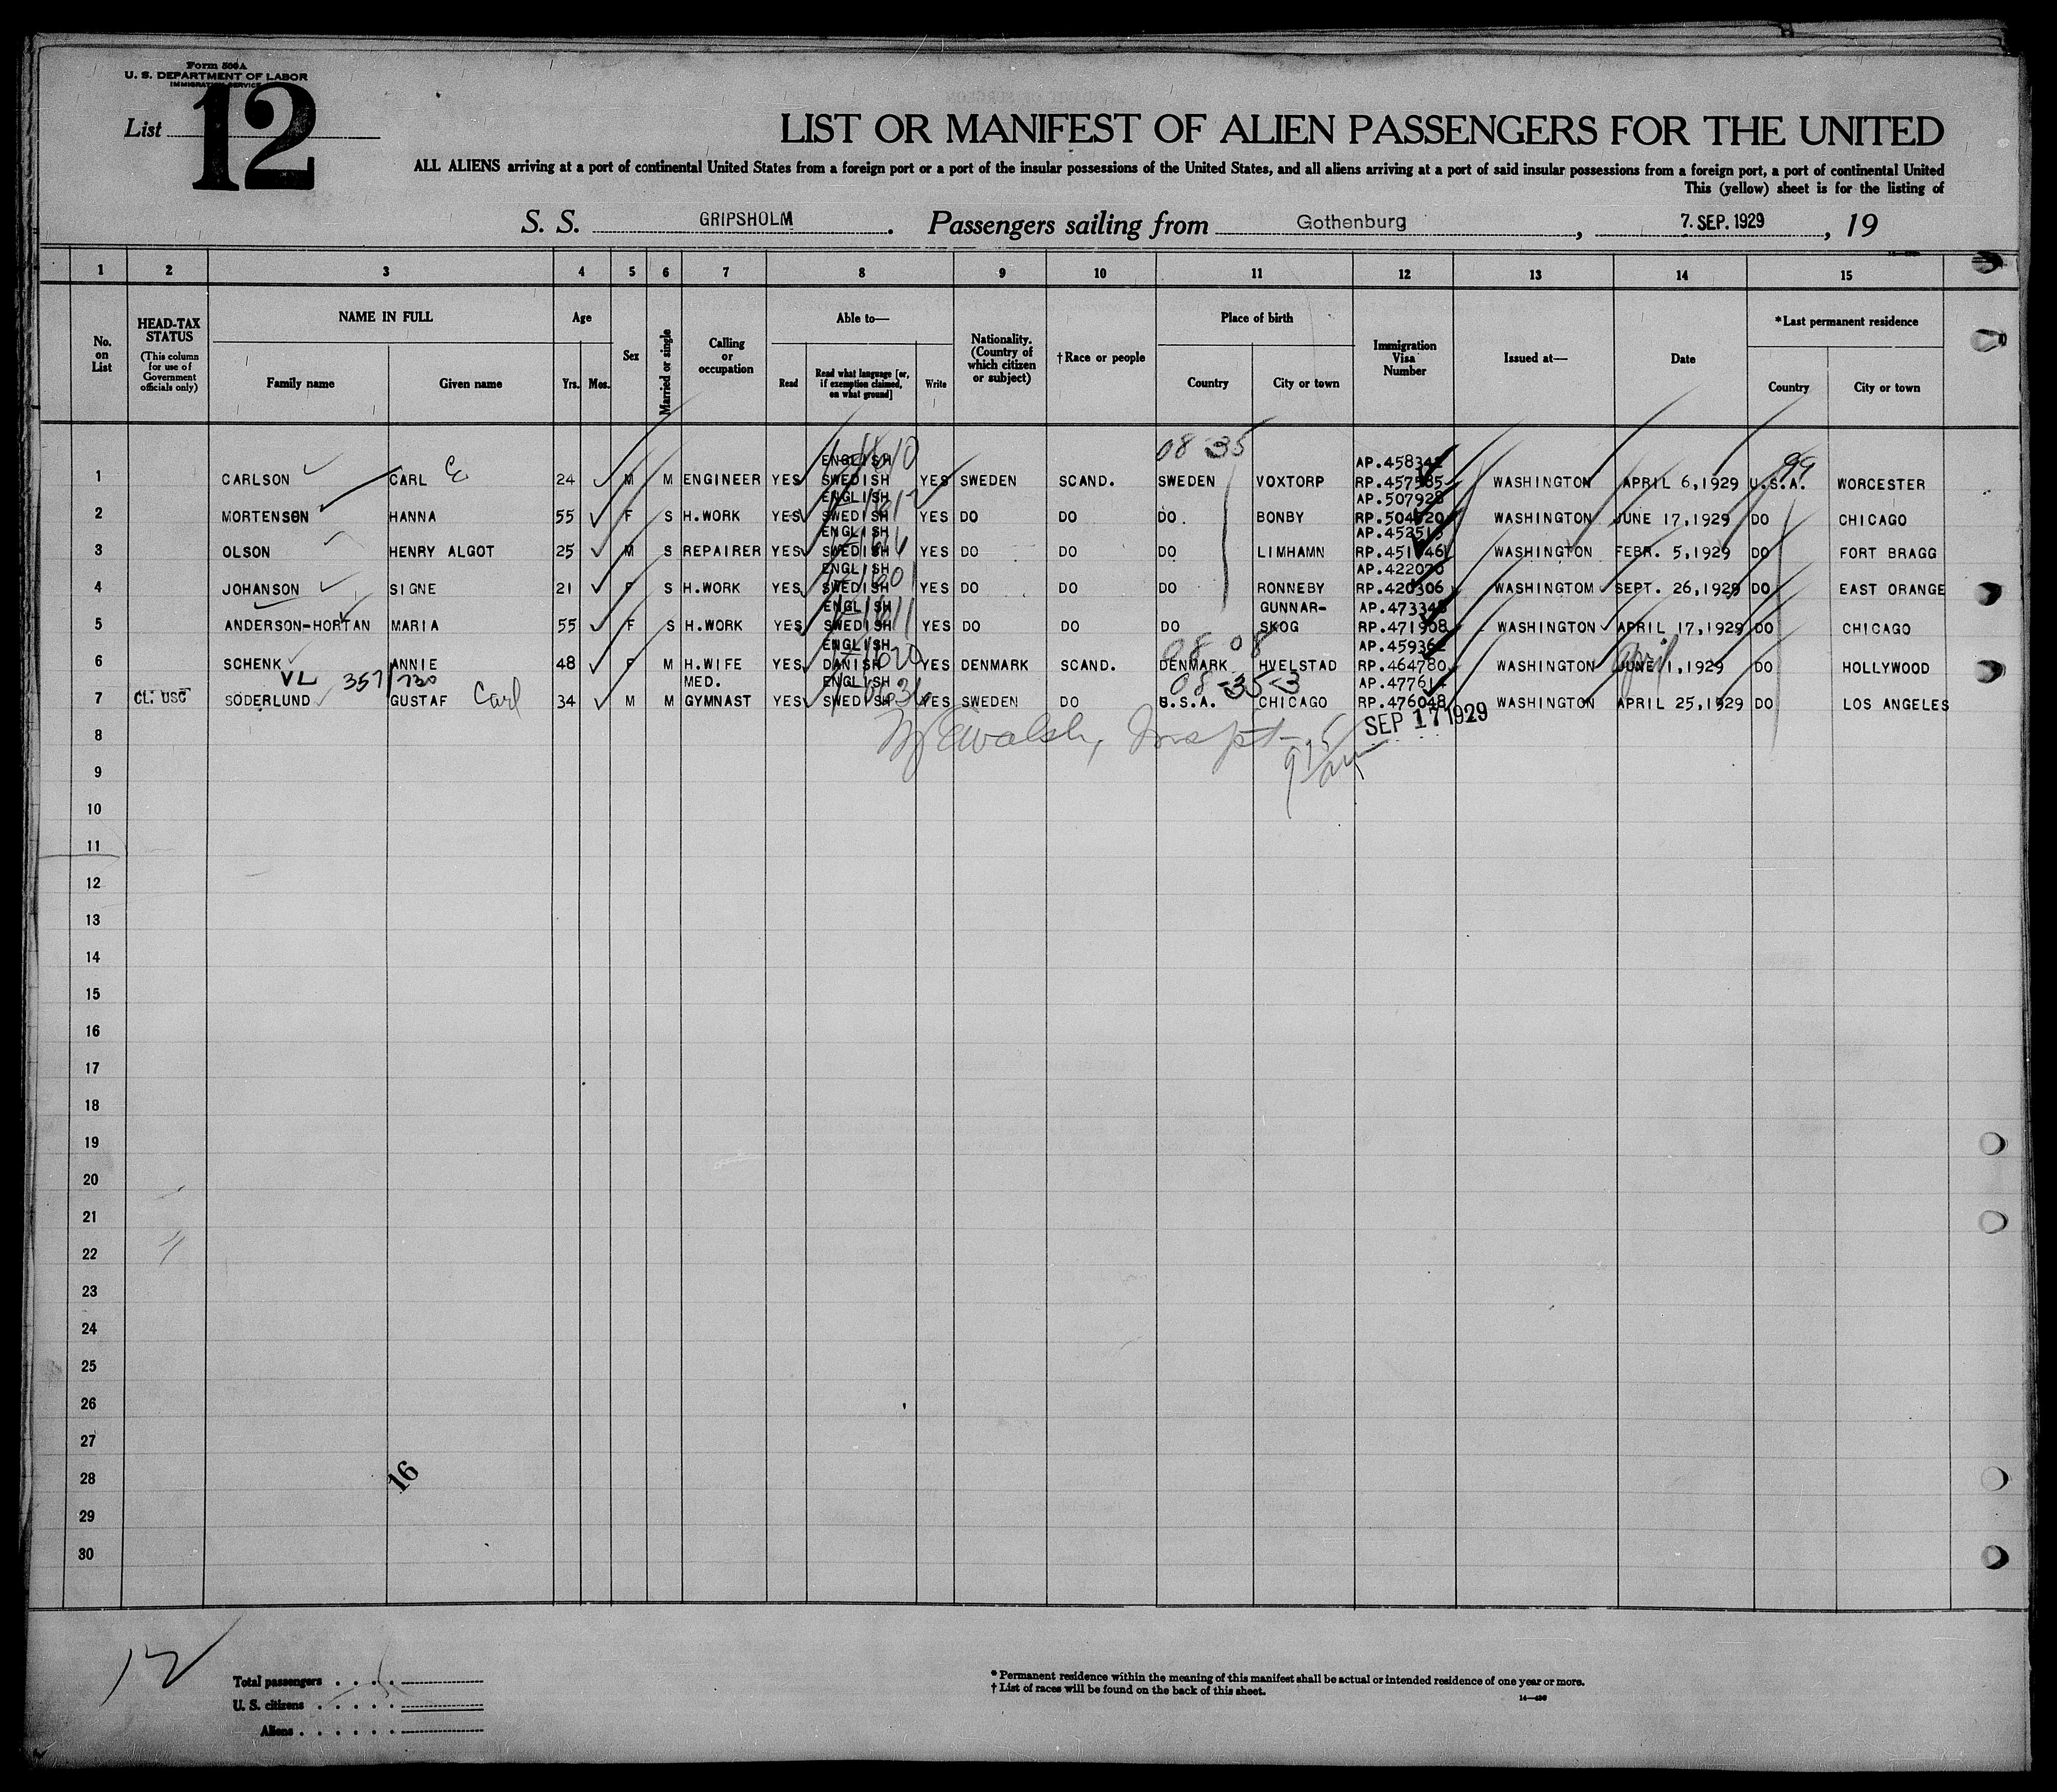 Form 500A
U. S. DEPARTMENT OF LABOR
IMMIGRATION SERVICE
List 12
LIST OR MANIFEST OF ALIEN PASSENGERS FOR THE UNITED
ALL ALIENS arriving at a port of continental United States from a foreign port or a port of the insular possessions of the United States, and all aliens arriving at a port of said insular possessions from a foreign port, a port of continental United
This (yellow) sheet is for the listing of
S. S. GRIPSHOLM. Passengers sailing from Gothenburg, 7. SEP. 1929, 19
1 2 3 4 5 6 7 8 9 10 11 12 13 14 15
No. on List
HEAD-TAX STATUS
(This column for use of Government officials only)
NAME IN FULL
Family name Given name
Age
Yrs. Mos.
Sex
Married or single
Calling or occupation
Able to—
Read Read what language [or, if exemption claimed, on what ground] Write
Nationality. (Country of which citizen or subject)
†Race or people
Place of birth
Country City or town
Immigration Visa Number
Issued at—
Date
*Last permanent residence
Country City or town
08 35
99
ENGLISH AP.458342
1 CARLSON CARL E 24 M M ENGINEER YES SWEDISH YES SWEDEN SCAND. SWEDEN VOXTORP RP.457585 WASHINGTON APRIL 6,1929 U.S.A. WORCESTER
ENGLISH AP.507928
2 MORTENSON HANNA 55 F S H.WORK YES SWEDISH YES DO DO DO BONBY RP.504520 WASHINGTON JUNE 17,1929 DO CHICAGO
ENGLISH AP.452515
3 OLSON HENRY ALGOT 25 M S REPAIRER YES SWEDISH YES DO DO DO LIMHAMN WASHINGTON FEBR. 5,1929 DO FORT BRAGG
ENGLISH AP.422070
4 JOHANSON SIGNE 21 F S H.WORK YES SWEDISH YES DO DO DO RONNEBY RP.420306 WASHINGTOM SEPT. 26,1929 DO EAST ORANGE
ENGLISH GUNNAR- AP.473348
5 ANDERSON-HORTAN MARIA 55 F S H.WORK YES SWEDISH YES DO DO DO SKOG RP.471908 WASHINGTON APRIL 17,1929 DO CHICAGO
ENGLISH 08 08 AP.459362 April
6 SCHENK ANNIE 48 F M H.WIFE YES DANISH YES DENMARK SCAND. DENMARK HVELSTAD RP.464780 WASHINGTON JUNE 1,1929 DO HOLLYWOOD
VL 357/730 MED. ENGLISH 08-35-3 AP.477614
7 CL. USC SÖDERLUND GUSTAF Carl 34 M M GYMNAST YES SWEDISH YES SWEDEN DO U.S.A. CHICAGO RP.476048 WASHINGTON APRIL 25,1929 DO LOS ANGELES
Walsh, Inspt. SEP 17 1929
8
9
10
11
12
13
14
15
16
17
18
19
20
21
22
23
24
25
26
27
28 16
29
30
12
Total passengers
U. S. citizens
Aliens
* Permanent residence within the meaning of this manifest shall be actual or intended residence of one year or more.
† List of races will be found on the back of this sheet.